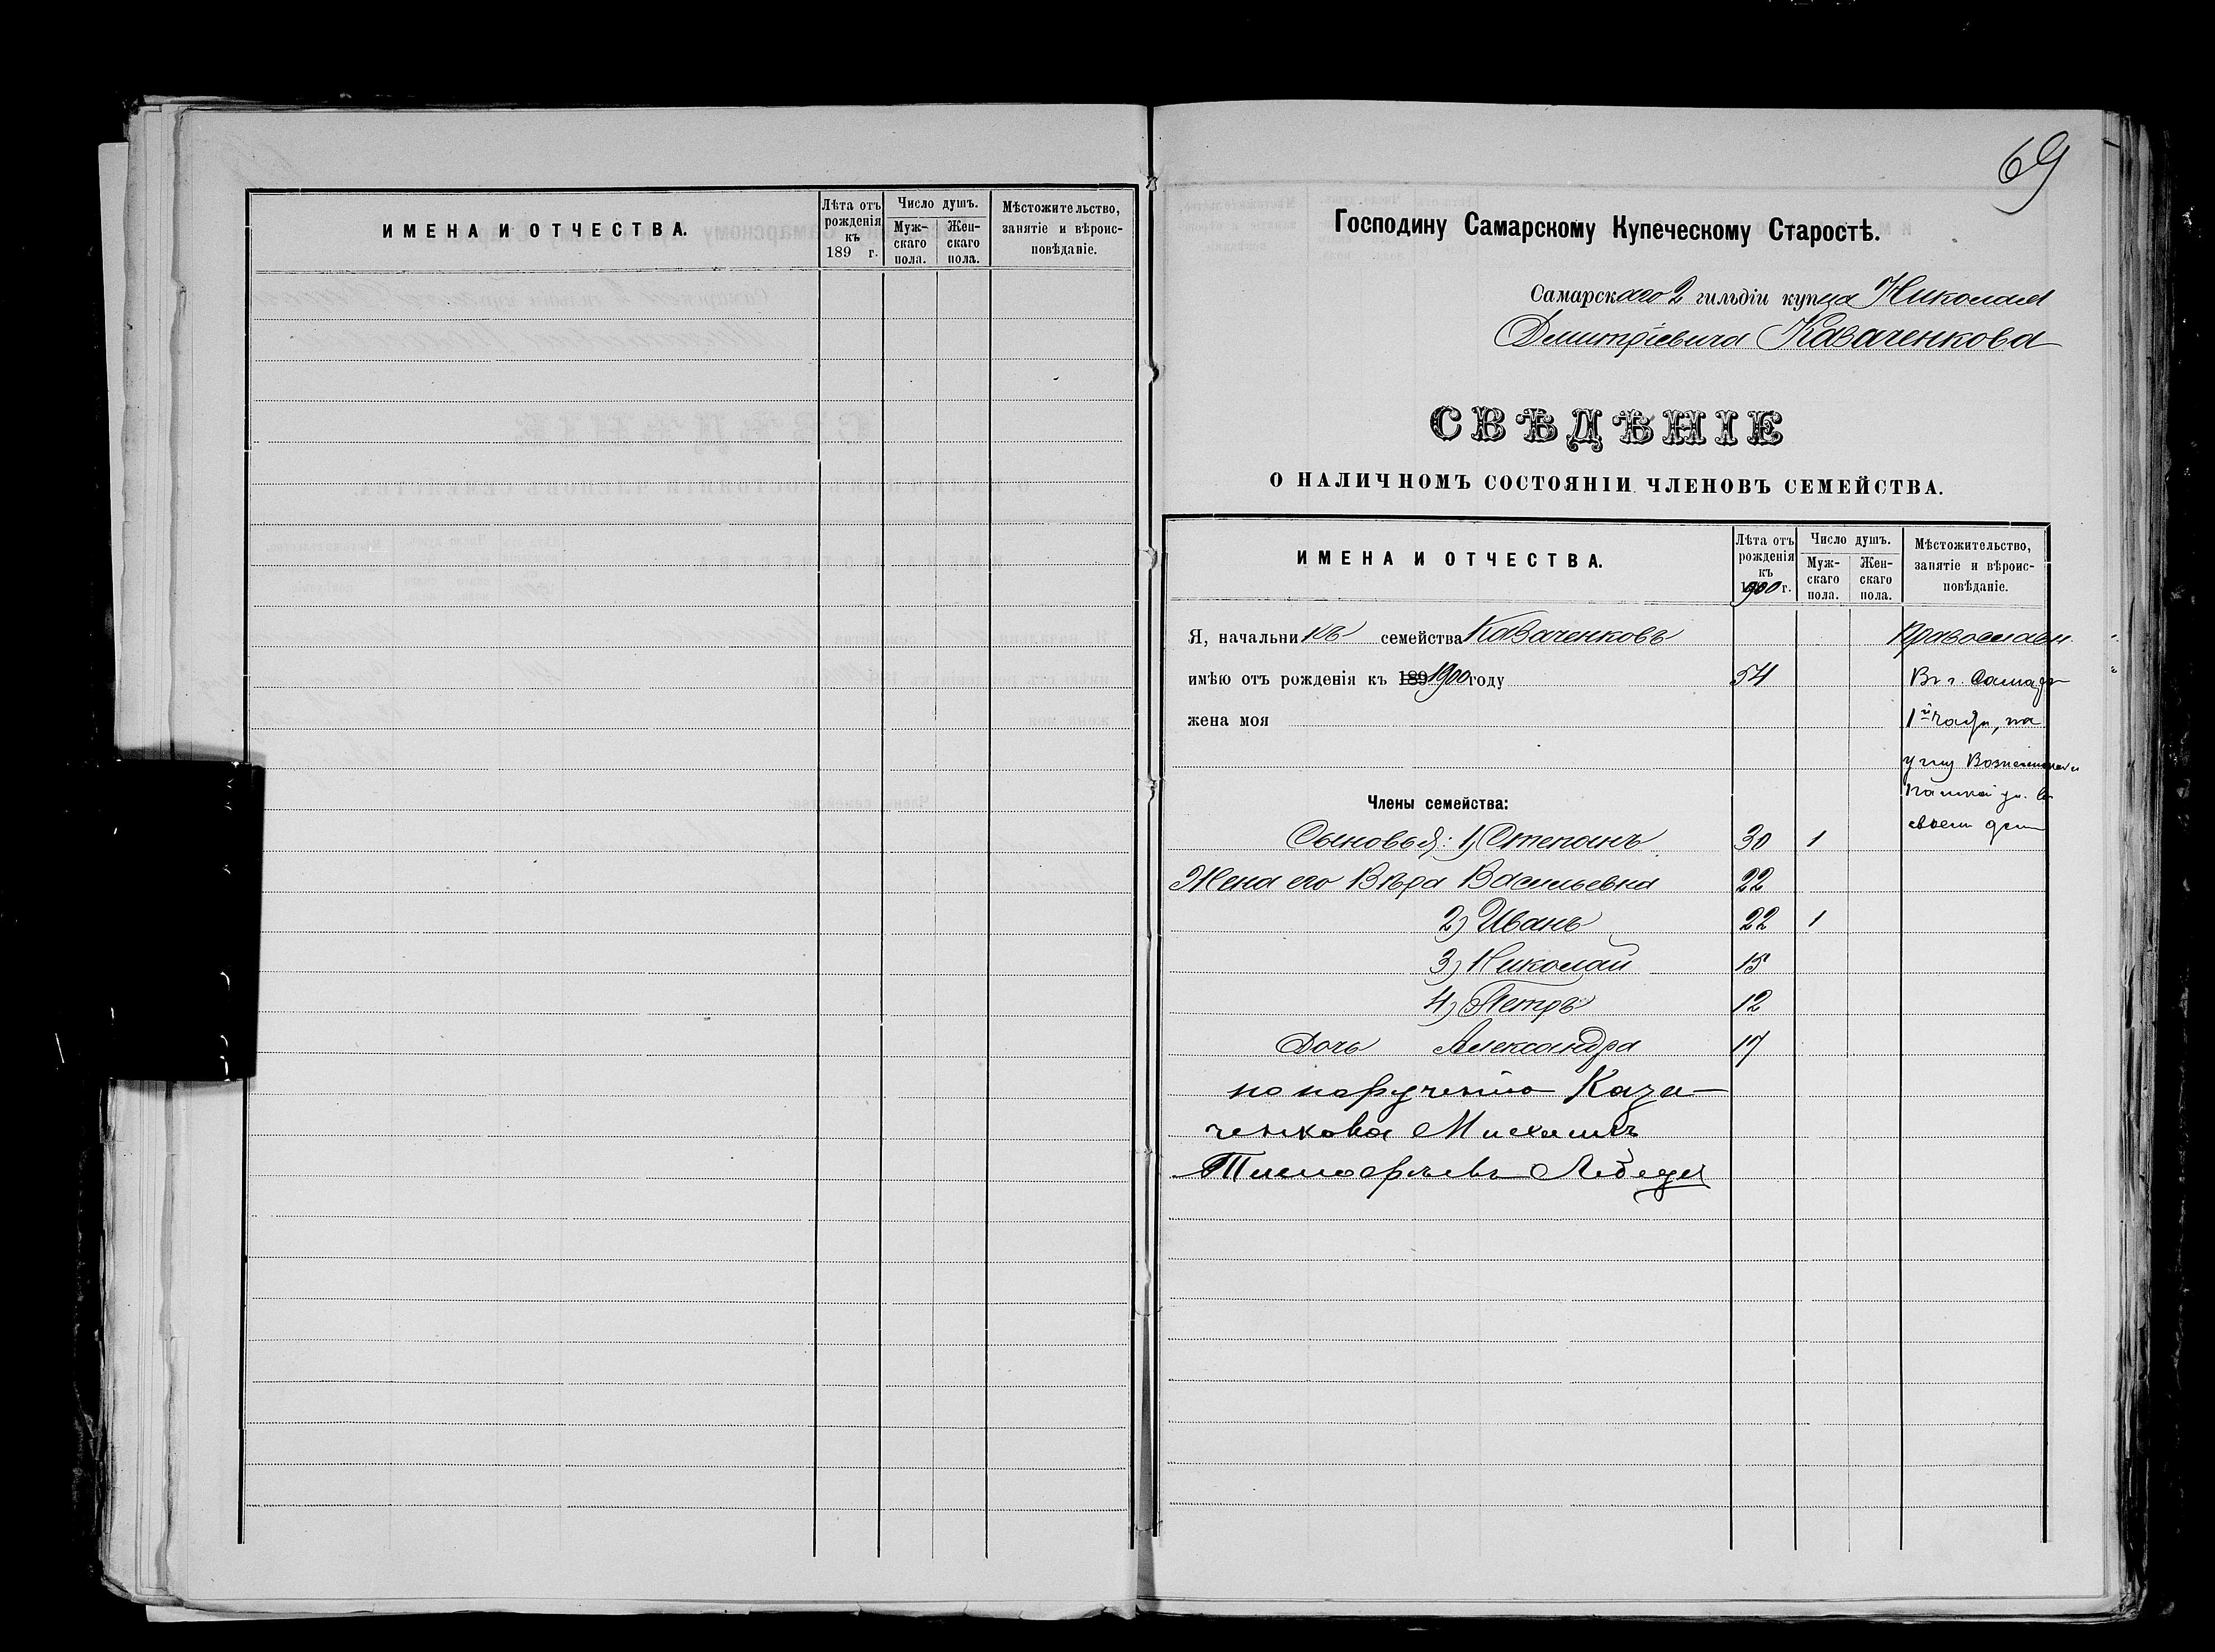 ИМЕНА И ОТЧЕСТВА.
Лѣта отъ рожденія къ 189 г.
Число душъ.
Мужскаго пола.
Женскаго пола.
Мѣстожительство, занятіе и вѣроисповѣданіе.
69
Господину Самарскому Купеческому Старостѣ.
Самарскаго 2 гильдіи купца Николая
Дмитріевича Казаченкова
СВѢДѢНІЕ
О НАЛИЧНОМЪ СОСТОЯНІИ ЧЛЕНОВЪ СЕМЕЙСТВА.
ИМЕНА И ОТЧЕСТВА.
Лѣта отъ рожденія къ 1900 г.
Число душъ.
Мужскаго пола.
Женскаго пола.
Мѣстожительство, занятіе и вѣроисповѣданіе.
Я, начальникъ семейства Казаченковъ Православн.
имѣю отъ рожденія къ 189 1900 году 54 Въ г. Самарѣ
жена моя 1й части, на
углу Вознесенской и
Члены семейства:
ул. въ
Сыновья: 1) Степанъ 30 1 своем доме
Жена его Вѣра Васильевна 22
2) Иванъ 22 1
3) Николай 15
4) Петръ 12
Дочь Александра 17
по порученію Каза-
ченкова Михаилъ
Тимофѣевъ Лебедев